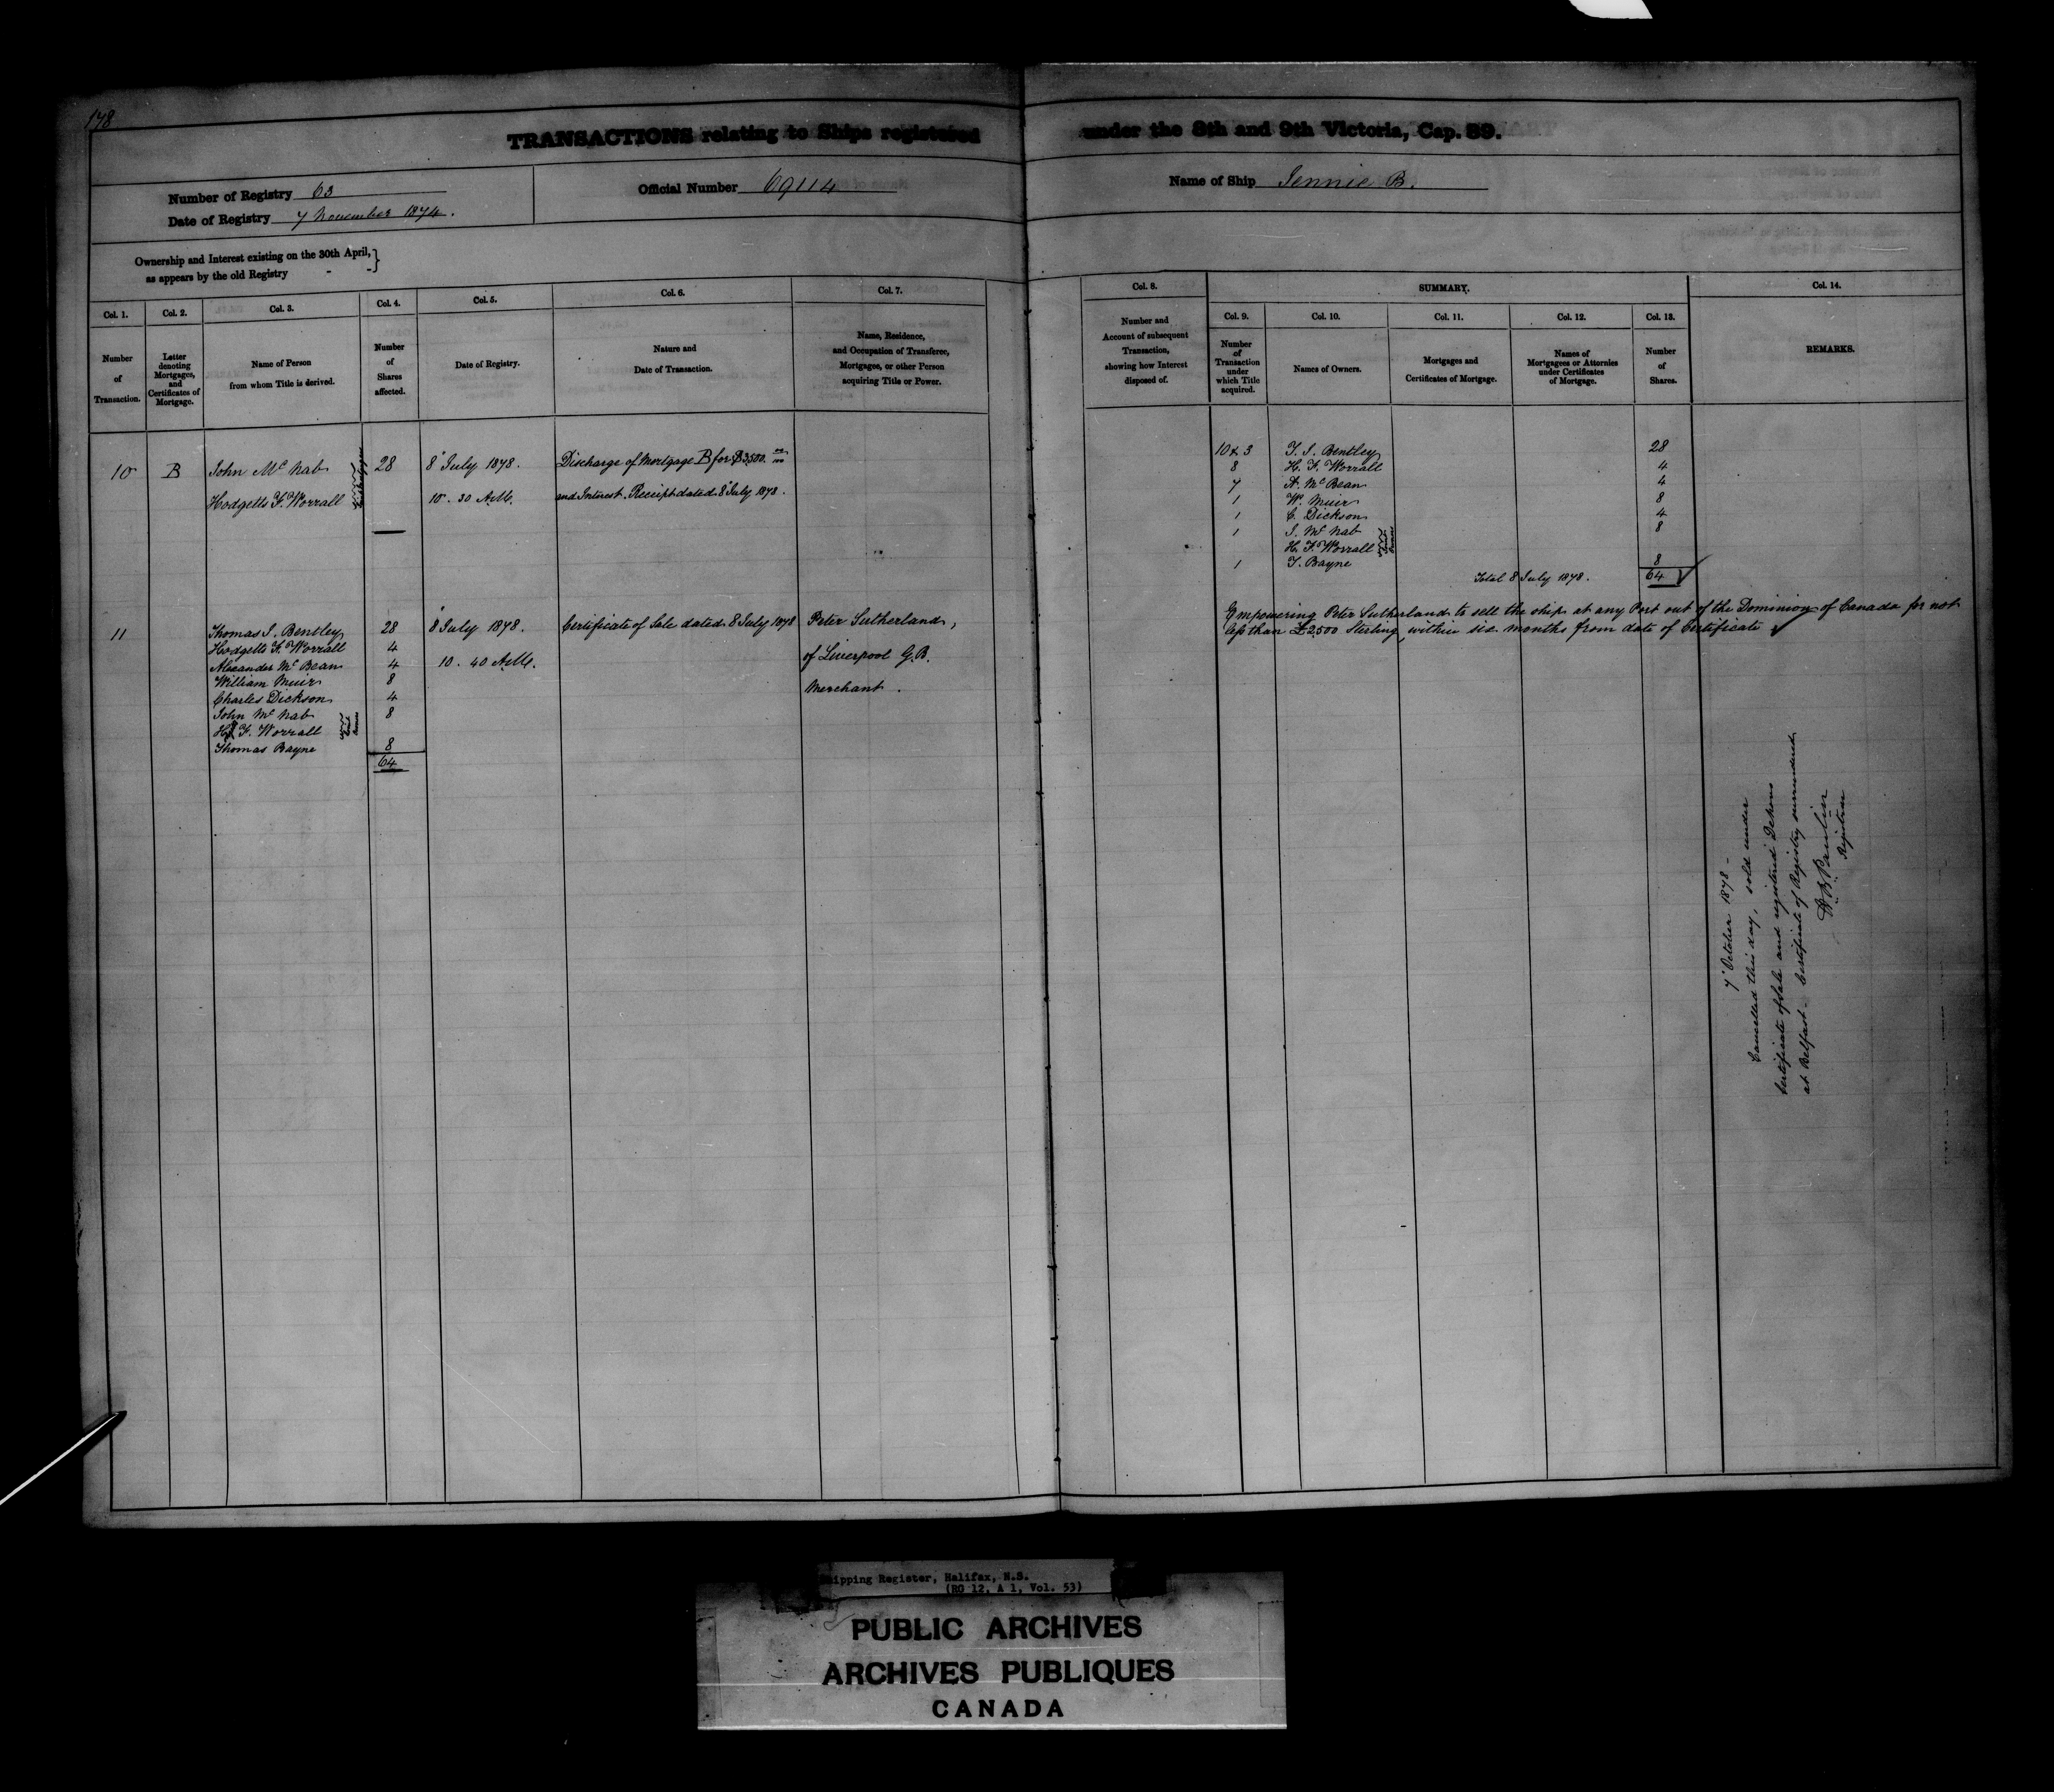 178
TRANSACTIONS relating to Ships registered under the 8th and 9th Victoria, Cap. 89.
Number of Registry 63
Date of Registry 7 November 1874.
Official Number 69114
Name of Ship Jennie B.
Ownership and Interest existing on the 30th April, }
as appears by the old Registry - - }
Col. 1.
Number
of
Transaction.
Col. 2.
Letter
denoting
Mortgages,
and
Certificates of
Mortgage.
Col. 3.
Name of Person
from whom Title is derived.
Col. 4.
Number
of
Shares
affected.
Col. 5.
Date of Registry.
Col. 6.
Nature and
Date of Transaction.
Col. 7.
Name, Residence,
and Occupation of Transferee,
Mortgagee, or other Person
acquiring Title or Power.
Col. 8.
Number and
Account of subsequent
Transaction,
showing how Interest
disposed of.
SUMMARY.
Col. 9.
Number
of
Transaction
under
which Title
acquired.
Col. 10.
Names of Owners.
Col. 11.
Mortgages and
Certificates of Mortgage.
Col. 12.
Names of
Mortgagees or Attornies
under Certificates
of Mortgage.
Col. 13.
Number
of
Shares.
Col. 14.
REMARKS.
10 B John McNab 28 8 July 1878. Discharge of Mortgage B for $3500. 00
Hodgetts F. Worrall 10. 30 A.M. and Interest. Receipt dated 8 July 1878.
10 & 3 T. J. Bentley 28
8 H. F. Worrall 4
7 A. McBean 4
1 W. Muir 8
1 C. Dickson 4
1 J. McNab 8
H. F. Worrall Joint Owners
1 T. Bayne 8
Total 8 July 1878. 64
11 Thomas J. Bentley 28 8 July 1878. Certificate of Sale dated 8 July 1878 Peter Sutherland,
Hodgetts F. Worrall 4
Alexander McBean 4 10. 40 A.M. of Liverpool G.B.
William Muir 8 Merchant.
Charles Dickson 4
John McNab 8
H. F. Worrall Joint Owners
Thomas Bayne 8
64
Empowering Peter Sutherland to sell the ship at any Port out of the Dominion of Canada for not
less than £2500 Sterling, within six months from date of Certificate
7 October 1878 -
Cancelled this day, sold under
Certificate of Sale and registered
at Belfast. Certificate of Registry surrendered
Registrar
Shipping Register, Halifax, N.S.
(RG 12, A 1, Vol. 53)
PUBLIC ARCHIVES
ARCHIVES PUBLIQUES
CANADA